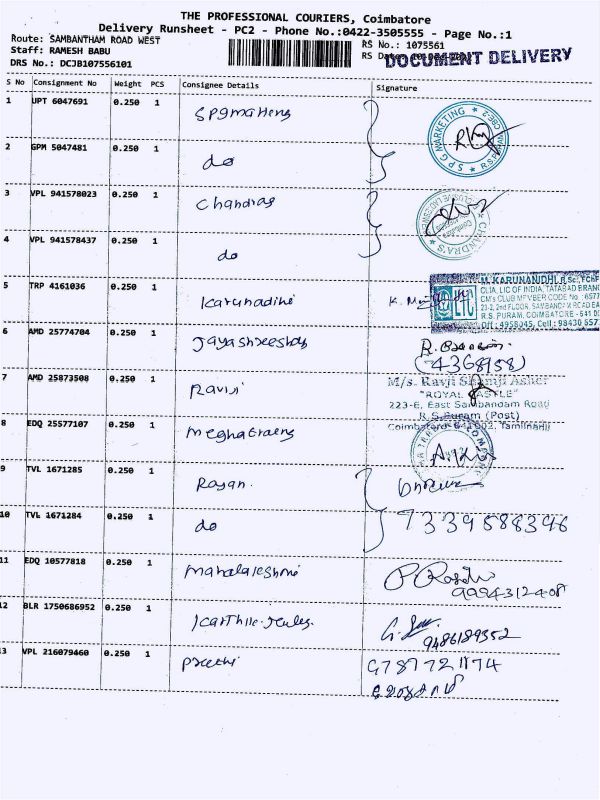 THE PROFESSIONAL COURIERS, Coimbatore
Delivery Runsheet - PC2 - Phone No.:0422-3505555 - Page No.:1
Route: SAMBANTHAM ROAD WEST
RS No.: 1075561
Staff: RAMESH BABU
RS Date
DOCUMENT DELIVERY
DRS No.: DCJB107556101
S No Consignment No Weight PCS Consignee Details Signature
1 UPT 6047691 0.250 1 Spgmatteng
SPG MARKETING
2 GPM 5047481 0.250 1 do
3 VPL 941578023 0.250 1 Chandras
CHANDRA'S
4 VPL 941578437 0.250 1 do
5 TRP 4161036 0.250 1 Karunadihi
M. KARUNANIDHI
CLIA, LIC OF INDIA, TATABAD BRANCH
CM's CLUB MEMBER CODE No
LIC
R.S. PURAM, COIMBATORE - 641 00
Off : 4958045, Cell : 98430 657
6 AMD 25774704 0.250 1 Jayashreeshoy
(4368158)
7 AMD 25873508 0.250 1 Raviji
M/s. Ravji Shamji Asher
"ROYAL CASTLE"
223-E, East Sambandam Road
R.S.Puram (Post)
Coimbatore 641002, Tamilnadu
8 EDQ 25577107 0.250 1 meghatraeng
9 TVL 1671285 0.250 1 Rajan.
10 TVL 1671284 0.250 1 do
7339588396
11 EDQ 10577818 0.250 1 mahalakshmi
9994312408
12 BLR 1750686952 0.250 1
9486189352
13 VPL 216079460 0.250 1 Preethi
9787721174